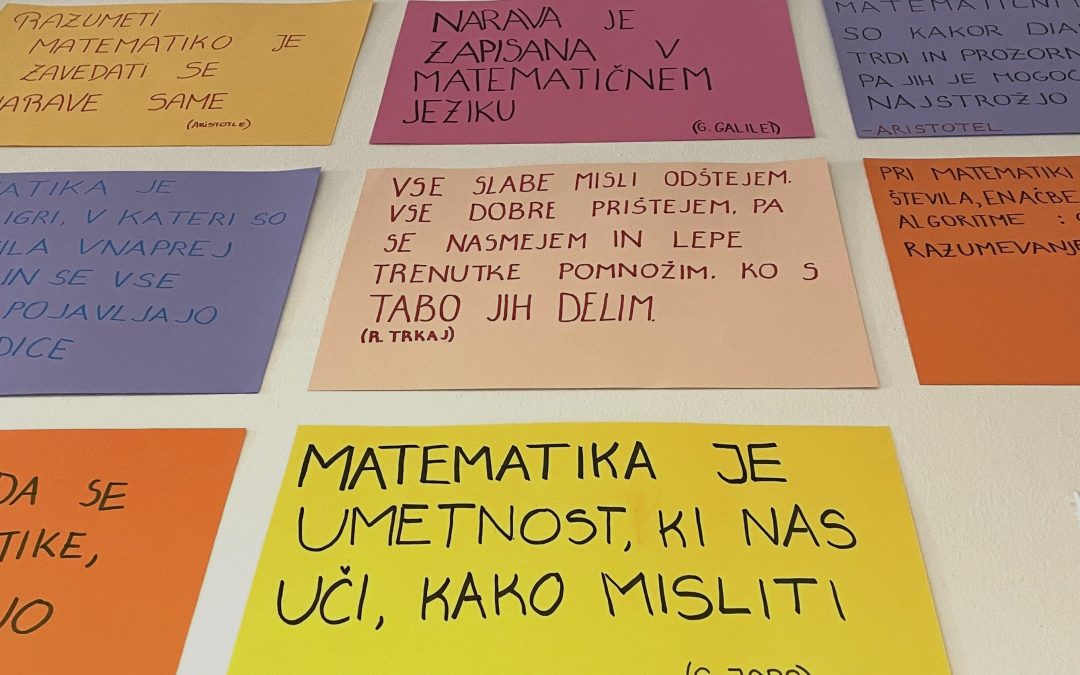 RAZUMETI
MATEMATIKO JE
ZAVEDATI SE
NARAVE SAME
(ARISTOTLE)
NARAVA JE
ZAPISANA V
MATEMATIČNEM
JEZIKU
(G. GALILEI)
SO KAKOR
TRDI IN PROZORN
PA JIH JE MOGOČ
NAJSTROŽJO
-ARISTOTEL
ATIKA JE
IGRI, V KATERI SO
ILA VNAPREJ
IN SE VSE
POJAVLJAJO
DICE
VSE SLABE MISLI ODŠTEJEM.
VSE DOBRE PRIŠTEJEM, PA
SE NASMEJEM IN LEPE
TRENUTKE POMNOŽIM, KO S
TABO JIH DELIM.
(R. TRKAJ)
PRI MATEMATIKI
ŠTEVILA, ENAČBE
ALGORITME :
RAZUMEVANJE
DA SE
TIKE,
JO
MATEMATIKA JE
UMETNOST, KI NAS
UČI, KAKO MISLITI